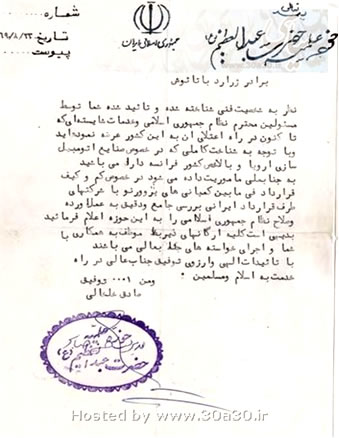 شماره
۶۹/۸/۲۳
پیوست
جمهوری اسلامی ایران
حوزه علمیه حضرت عبدالعظیم (ع)
برادر ژرارد باتاتوش
نظر به شخصیت فنی شناخته شده و تائید شده شما توسط
مسئولین محترم نظام جمهوری اسلامی وخدمات شایسته‌ای که
تا کنون در راه اعتلای ان به این کشور عرضه نموده‌اید
وبا توجه به شناخت کاملی که در خصوص صنایع اتومبیل
سازی اروپا و بالاخص کشور فرانسه دارا می باشید
به جنابعالی ماموریت داده می شود در خصوص کم و کیف
قرارداد فی مابین کمپانی های پژو ورنو با شرکتهای
طرف قرارداد ایرانی بررسی جامع ودقیق به عمل اورده
وصلاح نظام جمهوری اسلامی را به این حوزه اعلام فرمائید
بدیهی است کلیه ارگانهای ذیربط موظف به همکاری با
شما و اجرای خواسته های جنابعالی می باشند
با تائیدات الهی وارزوی توفیق جناب عالی در راه
خدمت به اسلام ومسلمین
ومن ا... توفیق
صادق خلخالی
حضرت عبدالعظیم
Hosted by www.30a30.ir